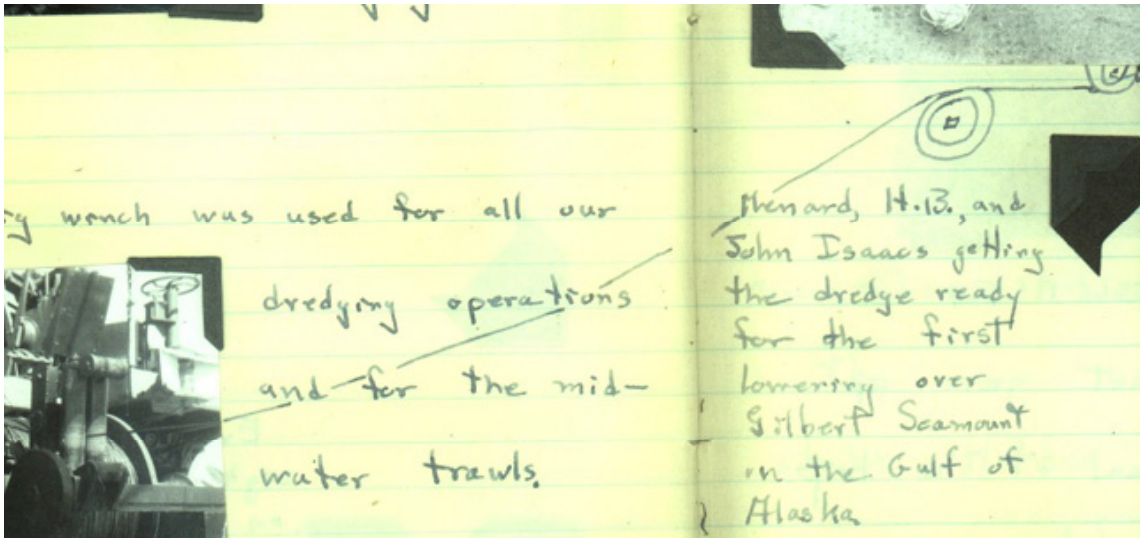 wench was used for all our
dredging operations
and for the mid-
water trawls.
Menard, H.B., and
John Isaacs getting
the dredge ready
for the first
lowering over
Gilbert Seamount
in the Gulf of
Alaska